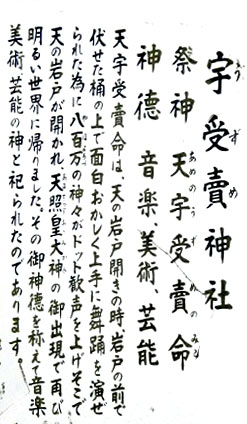 宇受賣神社
祭神 天宇受賣命
神德 音楽、美術、芸能
天宇受賣命は、天の岩戸開きの時、岩戸の前で
伏せた桶の上で面白おかしく上手に舞踊を演ぜ
られた為に八百万の神々がドット歓声を上げそこで
天の岩戸が開かれ、天照皇大神の御出現で再び
明るい世界に帰りました。その御神徳を称えて音楽
美術芸能の神と祀られたのであります。